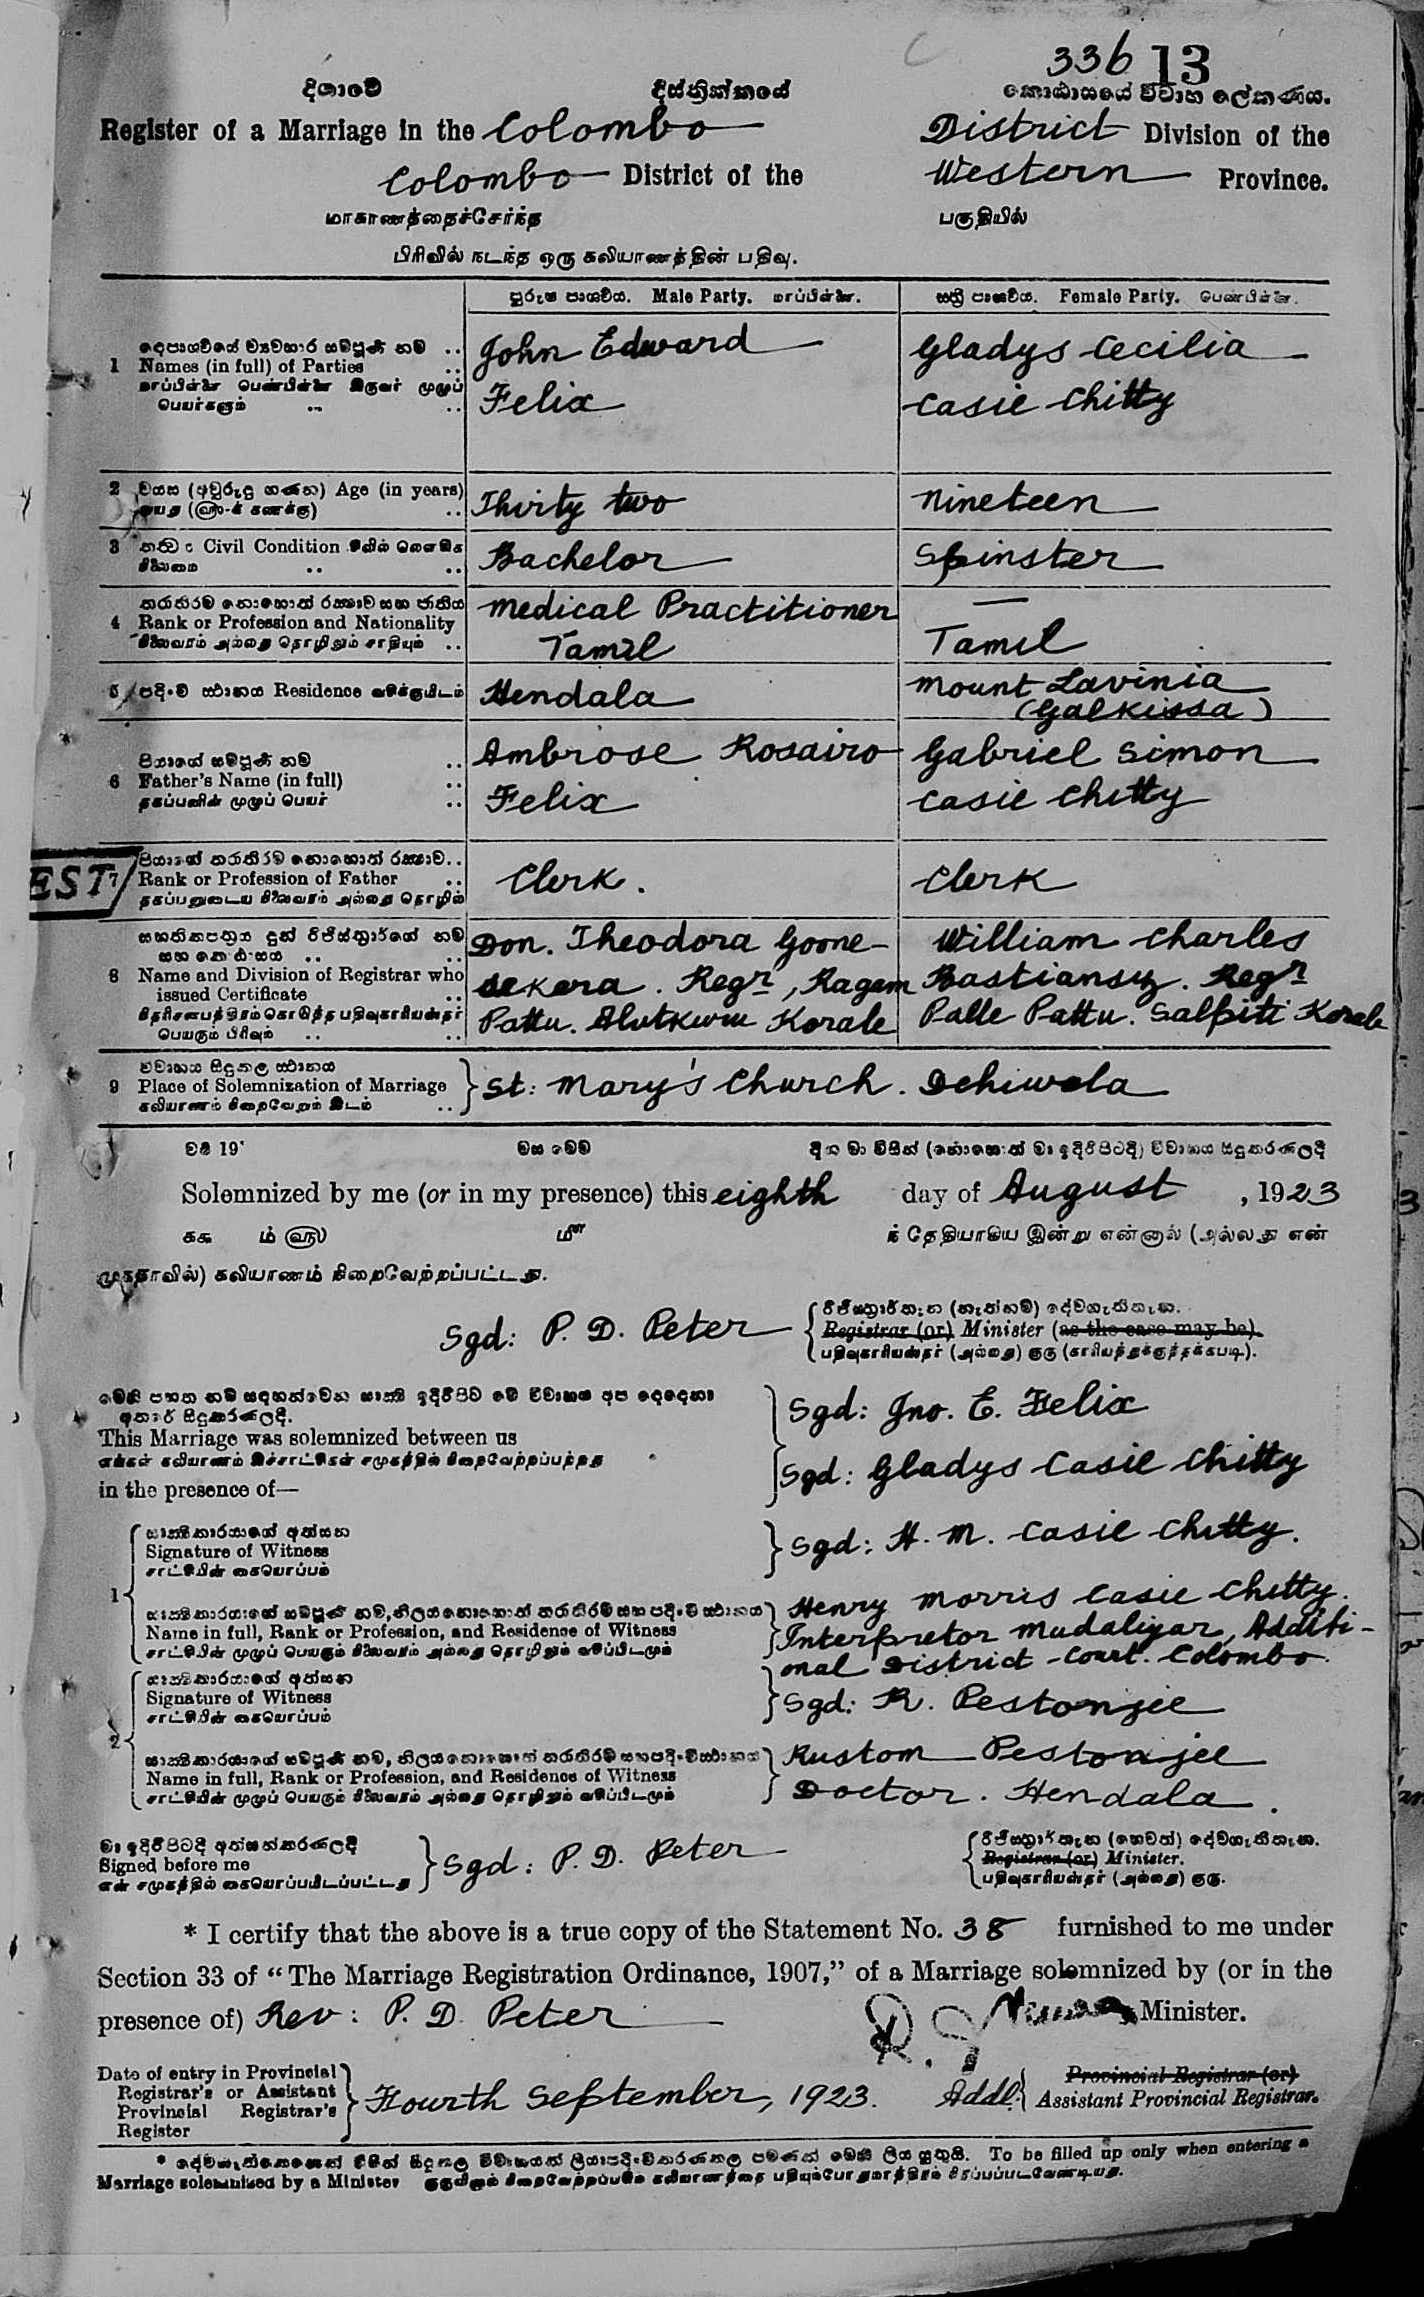 336 13
දිශාවේ දිස්ත්‍රික්කයේ කොට්ඨාසයේ විවාහ ලේකණය.
Register of a Marriage in the Colombo District Division of the
Colombo District of the Western Province.
மாகாணத்தைச்சேர்ந்த பகுதியில்
பிரிவில் நடந்த ஒரு கலியாணத்தின் பதிவு.
පුරුෂ පාර්ශ්වය. Male Party. மாப்பிள்ளை. ස්ත්‍රී පාර්ශ්වය. Female Party. பெண்பிள்ளை.
John Edward Gladys Cecilia
1 Names (in full) of Parties
மாப்பிள்ளை பெண்பிள்ளை இருவர் முழுப்
பெயர்களும் Felix Casie Chitty
2 වයස (අවුරුදු ගණන) Age (in years) Thirty two Nineteen
3 Civil Condition Bachelor Spinster
Medical Practitioner —
4 Rank or Profession and Nationality
நிலைவரம் அல்லது தொழிலும் சாதியும் Tamil Tamil
5 පදිංචි ස්ථානය Residence வசிக்குமிடம் Hendala Mount Lavinia
(Galkissa)
පියාගේ සම්පූර්ණ නම Ambrose Rosairo Gabriel Simon
6 Father's Name (in full)
தகப்பனின் முழுப் பெயர் Felix Casie Chitty
EST
7 Rank or Profession of Father Clerk. Clerk
தகப்பனுடைய நிலைவரம் அல்லது தொழில்
Don. Theodora Goone- William Charles
8 Name and Division of Registrar who sekera. Regr, Ragam Bastiansz. Regr
issued Certificate
பெயரும் பிரிவும் Pattu. Alutkuru Korale Palle Pattu. Salpiti Korale
විවාහය සිදුකල ස්ථානය
9 Place of Solemnization of Marriage St: Mary's Church. Dehiwela
கலியாணம் நிறைவேறும் இடம்
වර්ෂ 19 මස මෙම දින මා විසින් (නොහොත් මා ඉදිරිපිටදී) විවාහය සිදුකරණලදී
Solemnized by me (or in my presence) this eighth day of August, 1923
ககூ ம் ௵ ௴ ந் தேதியாகிய இன்று என்னால் (அல்லது என்
முகதாவில்) கலியாணம் நிறைவேற்றப்பட்டது.
Sgd: P. D. Peter Registrar (or) Minister (as the case may be).
பதிவுகாரியஸ்தர் (அல்லது) குரு (காரியத்துக்குத்தக்கபடி).
Sgd: Jno. E. Felix
This Marriage was solemnized between us
Sgd: Gladys Casie Chitty
in the presence of—
සාක්ෂිකාරයාගේ අත්සන
Signature of Witness Sgd: H. M. Casie Chitty.
சாட்சியின் கையொப்பம்
1
Henry Morris Casie Chitty.
Name in full, Rank or Profession, and Residence of Witness Interpretor Mudaliyar, Additi-
சாட்சியின் முழுப் பெயரும் நிலைவரம் அல்லது தொழிலும் வசிப்பிடமும்
onal District Court. Colombo.
සාක්ෂිකාරයාගේ අත්සන
Signature of Witness Sgd: R. Pestonjee
சாட்சியின் கையொப்பம்
2
Rustom Pestonjee
Name in full, Rank or Profession, and Residence of Witness
சாட்சியின் முழுப் பெயரும் நிலைவரம் அல்லது தொழிலும் வசிப்பிடமும் Doctor. Hendala.
මා ඉදිරිපිටදී අත්සන්කරණලදී
Signed before me Sgd: P. D. Peter Registrar (or) Minister.
என் சமுகத்தில் கையொப்பமிடப்பட்டது பதிவுகாரியஸ்தர் (அல்லது) குரு.
* I certify that the above is a true copy of the Statement No. 38 furnished to me under
Section 33 of “The Marriage Registration Ordinance, 1907,” of a Marriage solemnized by (or in the
presence of) Rev: P. D. Peter Minister.
Date of entry in Provincial
Registrar's or Assistant
Provincial Registrar's
Register
Fourth September, 1923. Addl. Provincial Registrar (or)
Assistant Provincial Registrar.
To be filled up only when entering a
Marriage solemnized by a Minister